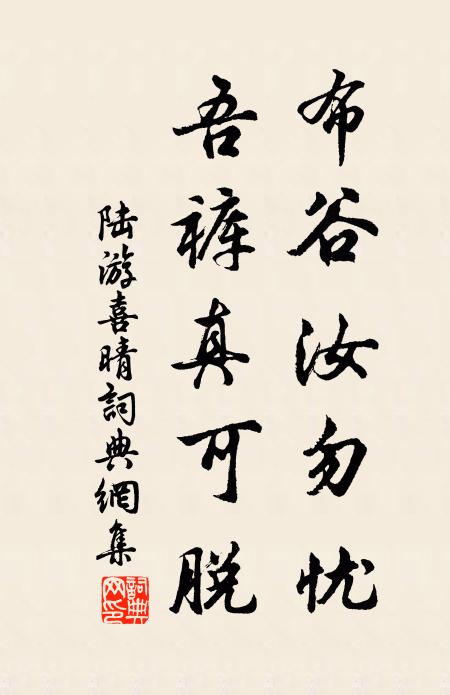 布谷汝勿忧
吾裤真可脱
陆游喜晴詞典網集
詞典网印